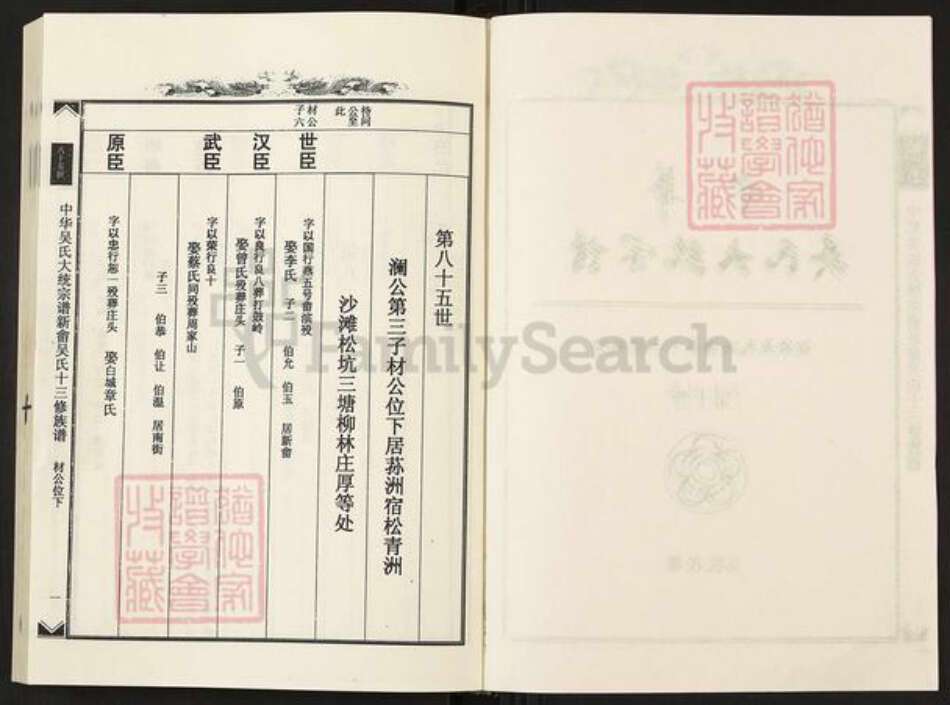 第八十五世
澜公第三子材公位下居荪洲宿松青洲
沙滩松坑三塘柳林庄厚等处
此
材公
子六
世臣
字以国行燕五号畲滨殁
娶李氏 子二 伯允 伯玉 居新畲
汉臣
字以良行良八葬打鼓岭
娶曾氏殁葬庄头 子一 伯原
武臣
字以荣行良十
娶蔡氏同殁葬周家山
子三 伯恭 伯让 伯温 居南街
原臣
字以忠行恕一殁葬庄头 娶白城章氏
八十五世
中华吴氏大统宗谱新畲吴氏十三修族谱
材公位下
一
FamilySearch